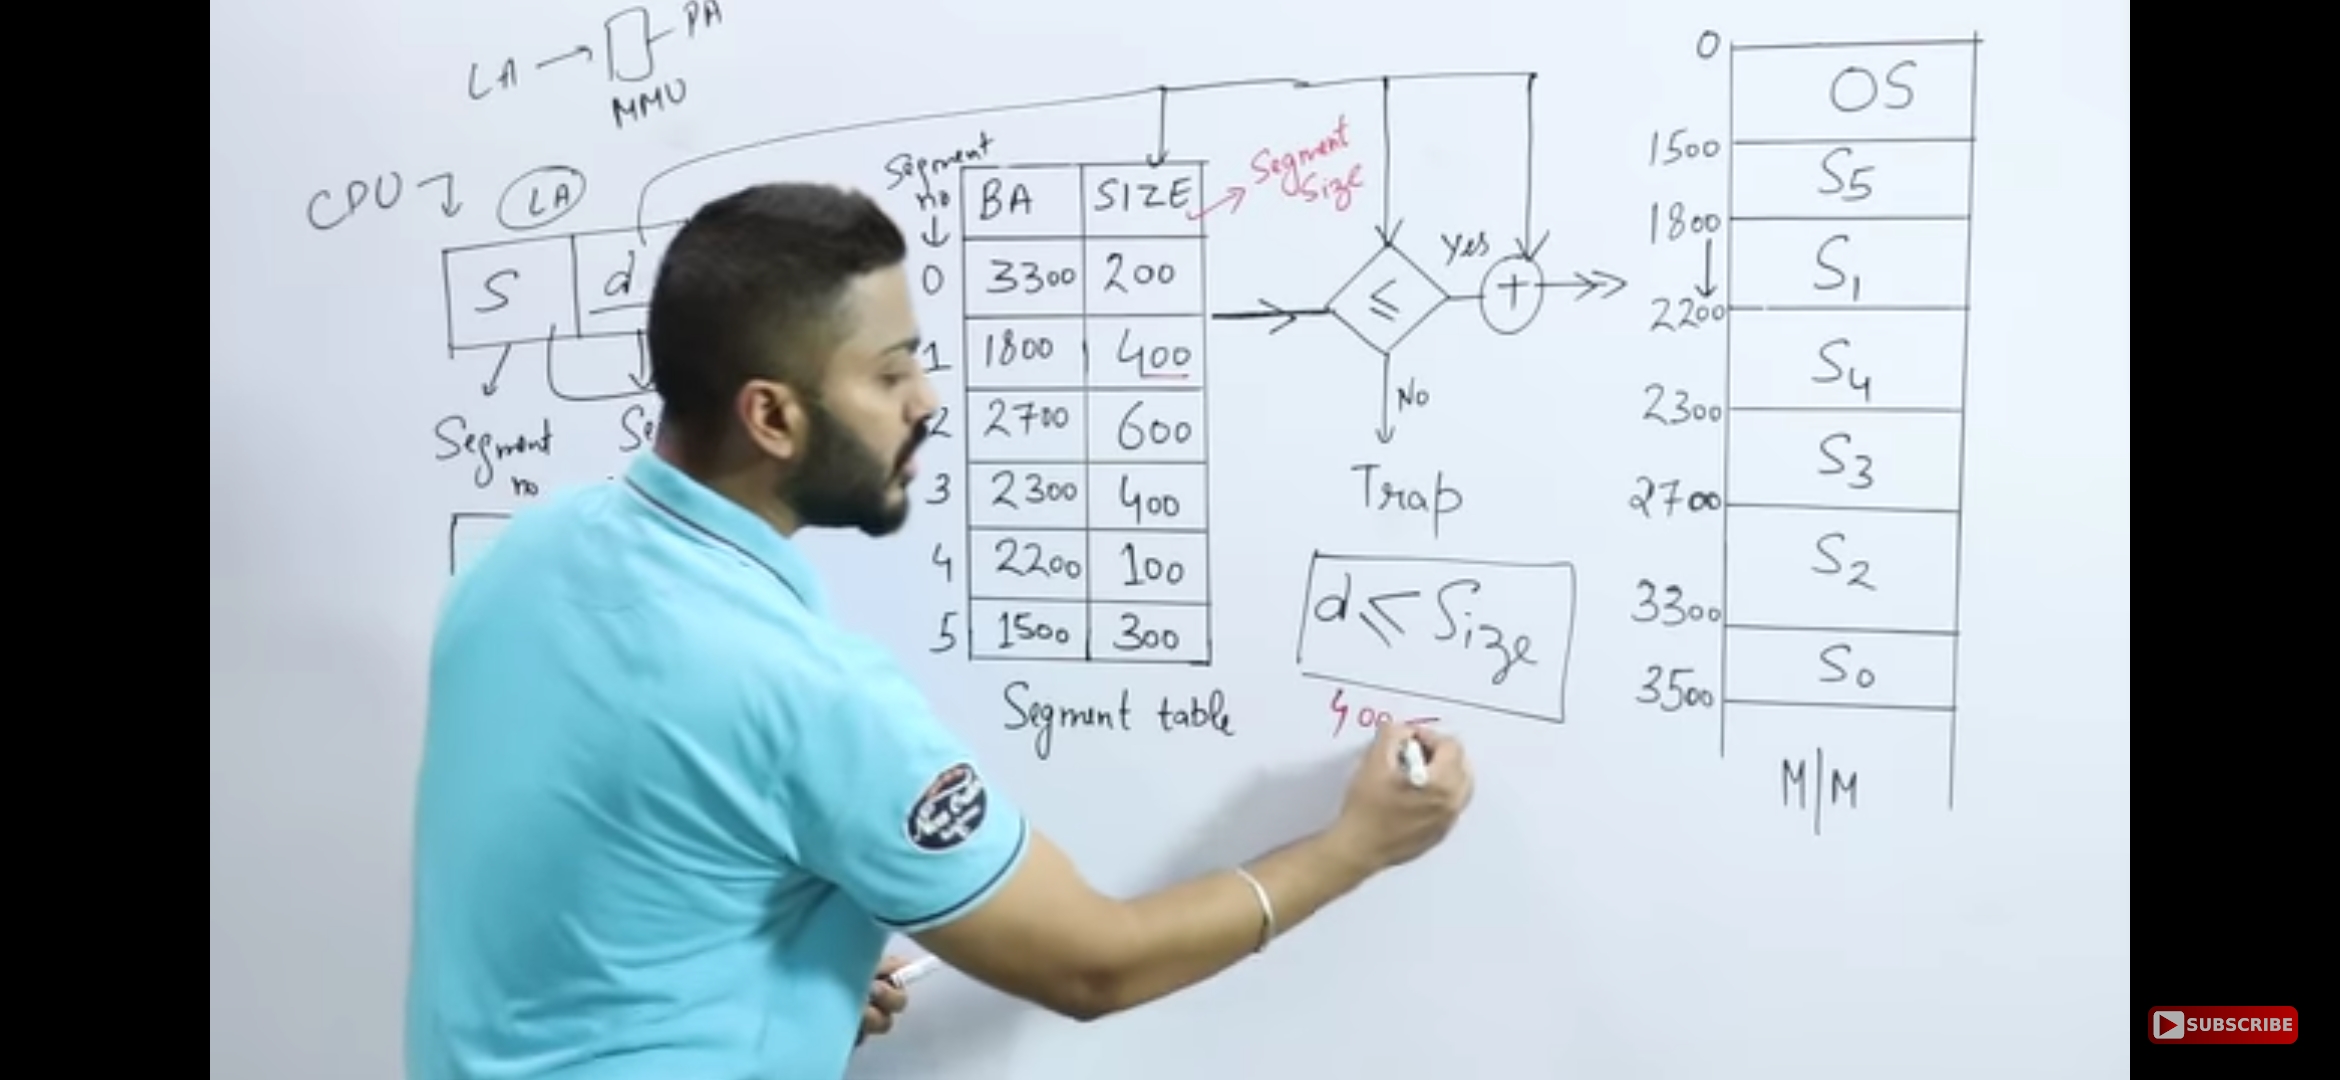 LA → PA
MMU
CPU
LA
S d
Segment
no
Segment
no
BA SIZE
0 3300 200
1 1800 400
2 2700 600
3 2300 400
4 2200 100
5 1500 300
Segment table
Segment
Size
≤
Yes
+
No
Trap
d ≤ Size
400
0
OS
1500
S5
1800
S1
2200
S4
2300
S3
2700
S2
3300
S0
3500
M/M
SUBSCRIBE